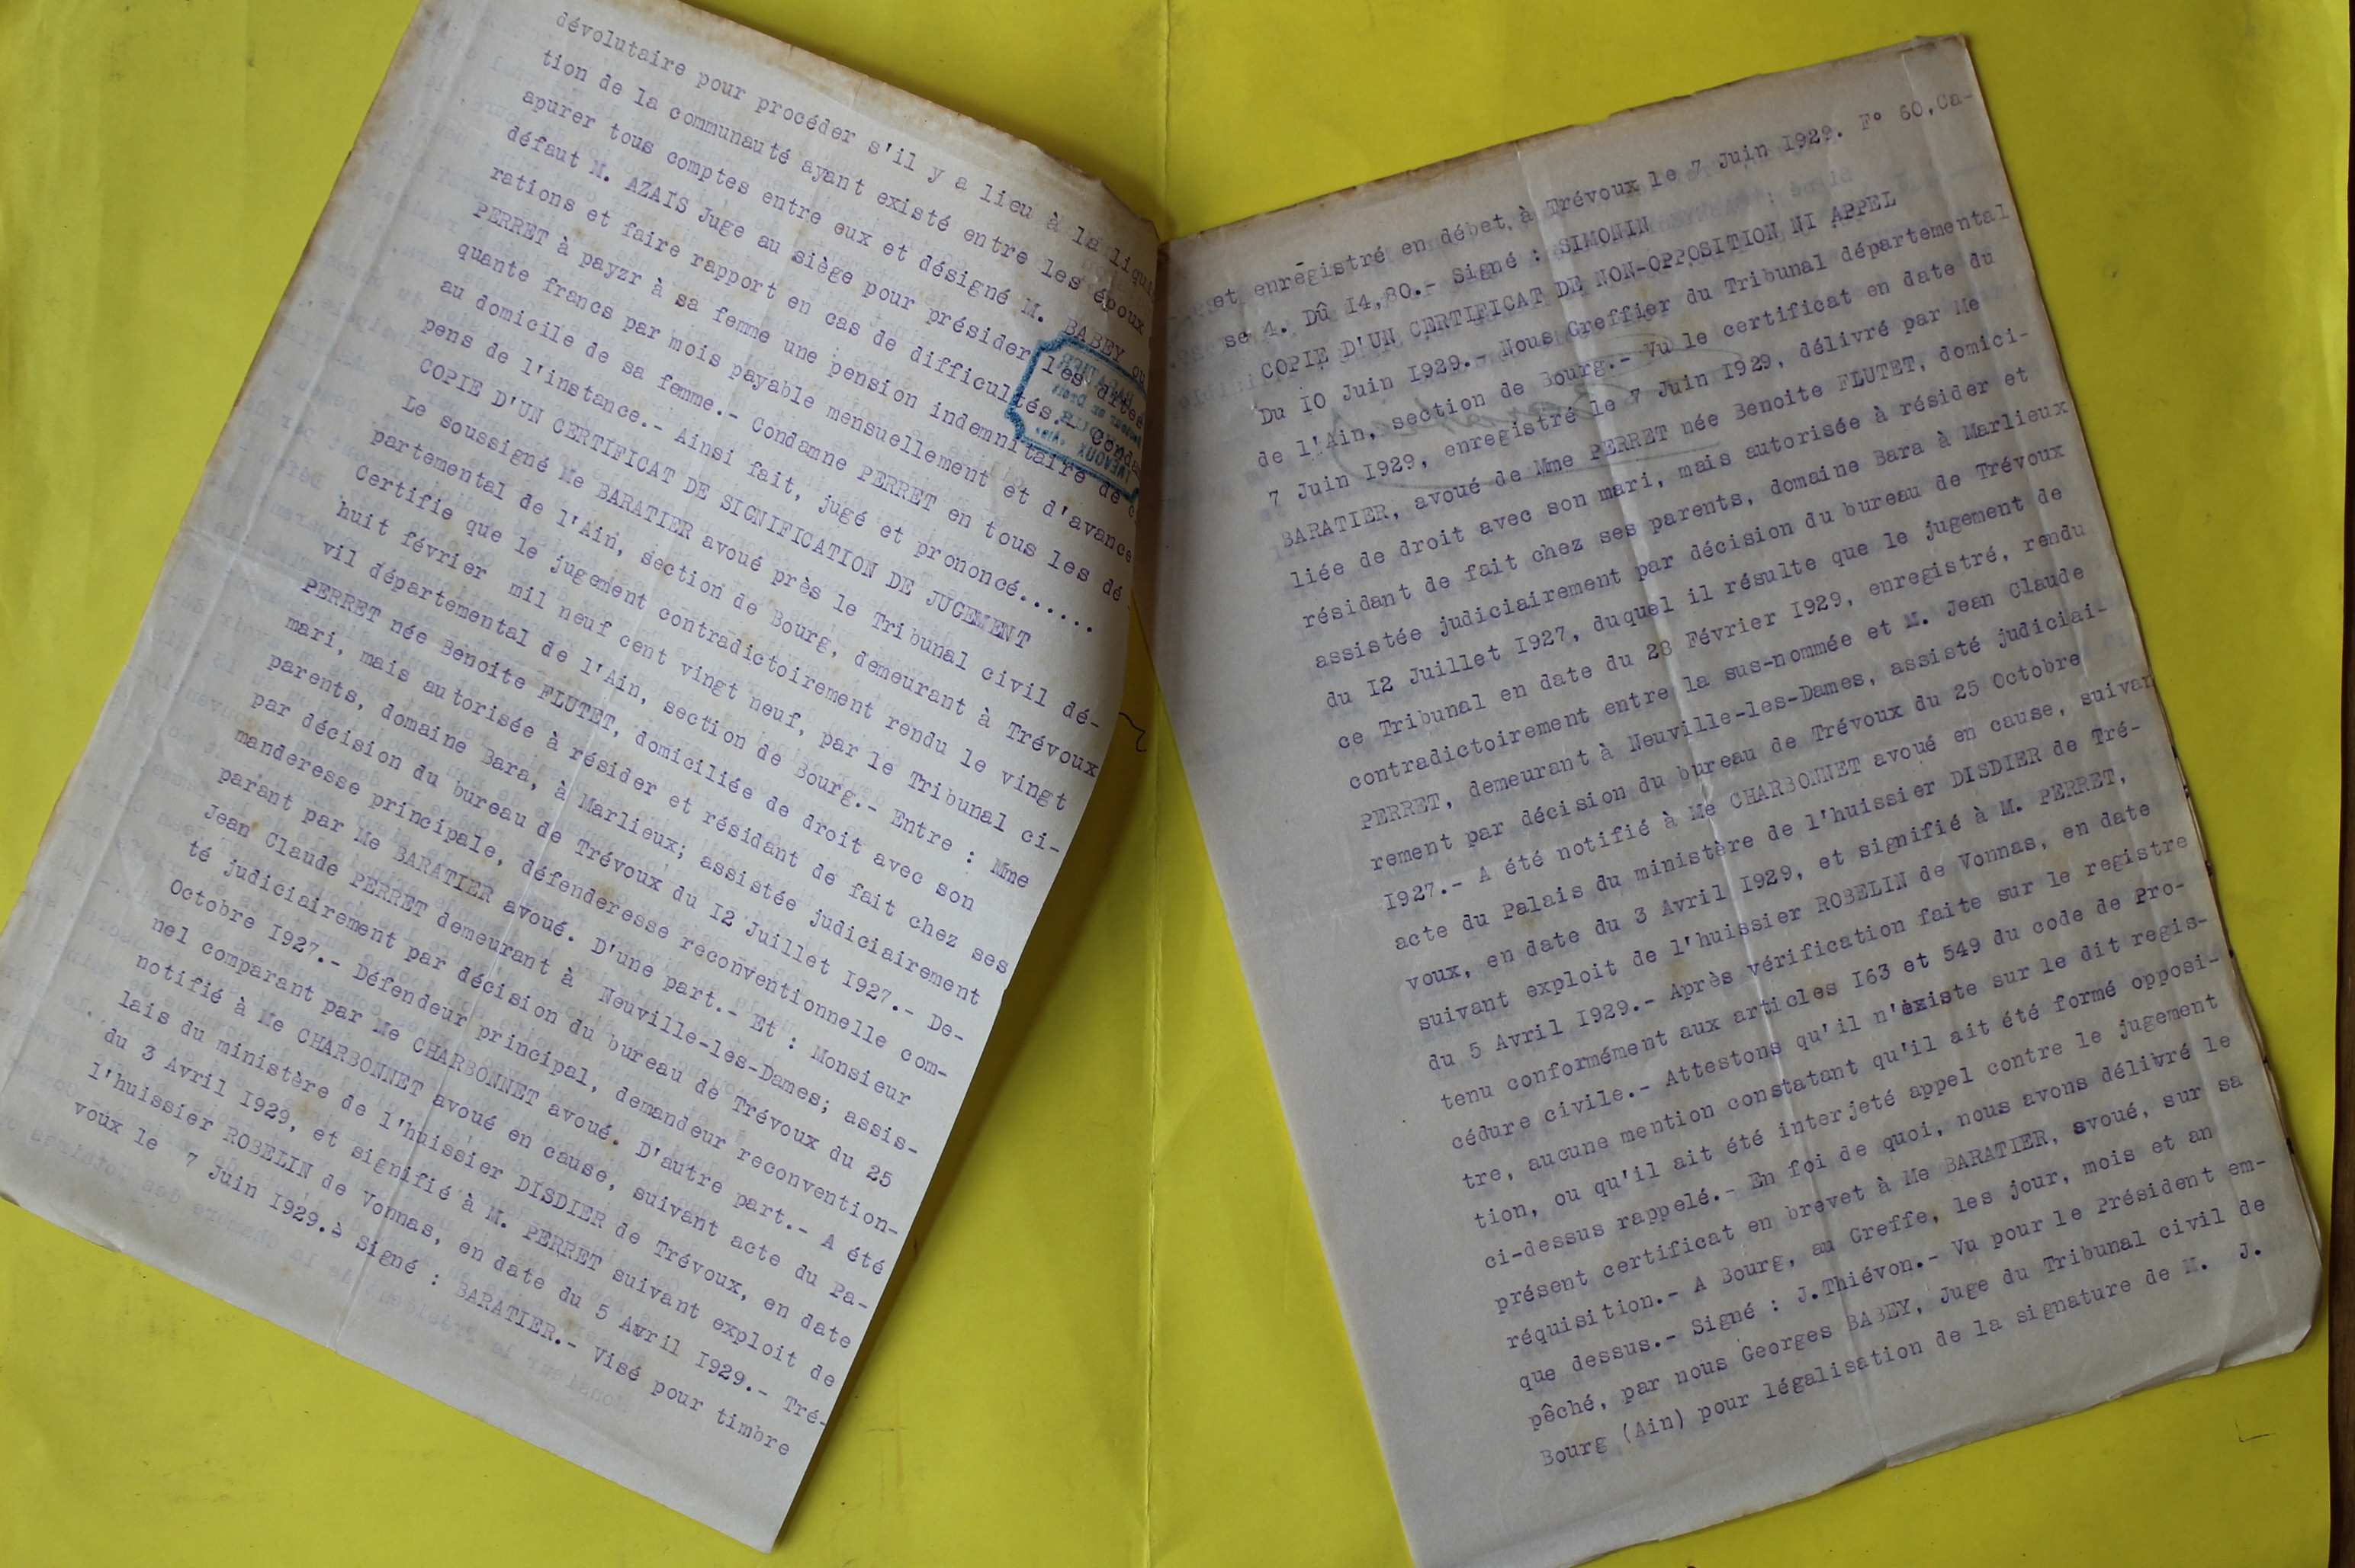 dévolutaire pour procéder s'il y a lieu à la liqui
tion de la communauté ayant existé entre les époux
apurer tous comptes entre eux et désigné M. BABEY ou
défaut M. AZAIS Juge au siège pour présider les dites
rations et faire rapport en cas de difficultés.- Condam
PERRET à payzr à sa femme une pension indemnitaire de c
quante francs par mois payable mensuellement et d'avance
au domicile de sa femme.- Condamne PERRET en tous les dé
pens de l'instance.- Ainsi fait, jugé et prononcé......
COPIE D'UN CERTIFICAT DE SIGNIFICATION DE JUGEMENT
Le soussigné Me BARATIER avoué près le Tribunal civil dé-
partemental de l'Ain, section de Bourg, demeurant à Trévoux
Certifie que le jugement contradictoirement rendu le vingt
huit février mil neuf cent vingt neuf, par le Tribunal ci-
vil départemental de l'Ain, section de Bourg.- Entre : Mme
PERRET née Benoite FLUTET, domiciliée de droit avec son
mari, mais autorisée à résider et résidant de fait chez ses
parents, domaine Bara, à Marlieux; assistée judiciairement
par décision du bureau de Trévoux du I2 Juillet I927.- De-
manderesse principale, défenderesse reconventionnelle com-
parant par Me BARATIER avoué. D'une part.- Et : Monsieur
Jean Claude PERRET demeurant à Neuville-les-Dames; assis-
té judiciairement par décision du bureau de Trévoux du 25
Octobre I927.- Défendeur principal, demandeur reconvention-
nel comparant par Me CHARBONNET avoué. D'autre part.- A été
notifié à Me CHARBONNET avoué en cause, suivant acte du Pa-
lais du ministère de l'huissier DISDIER de Trévoux, en date
du 3 Avril I929, et signifié à M. PERRET suivant exploit de
l'huissier ROBELIN de Vonnas, en date du 5 Avril I929.- Tré-
voux le 7 Juin I929.à Signé : BARATIER.- Visé pour timbre
et enregistré en débet, à Trévoux le 7 Juin I929. F° 60,Ca-
se 4. Dû I4,80.- Signé : SIMONIN
COPIE D'UN CERTIFICAT DE NON-OPPOSITION NI APPEL
Du I0 Juin I929.- Nous Greffier du Tribunal départemental
de l'Ain, section de Bourg.- Vu le certificat en date du
7 Juin I929, enregistré le 7 Juin I929, délivré par Me
BARATIER, avoué de Mme PERRET née Benoite FLUTET, domici-
liée de droit avec son mari, mais autorisée à résider et
résidant de fait chez ses parents, domaine Bara à Marlieux
assistée judiciairement par décision du bureau de Trévoux
du I2 Juillet I927, duquel il résulte que le jugement de
ce Tribunal en date du 28 Février I929, enregistré, rendu
contradictoirement entre la sus-nommée et M. Jean Claude
PERRET, demeurant à Neuville-les-Dames, assisté judiciai-
rement par décision du bureau de Trévoux du 25 Octobre
I927.- A été notifié à Me CHARBONNET avoué en cause, suivan
acte du Palais du ministère de l'huissier DISDIER de Tré-
voux, en date du 3 Avril I929, et signifié à M. PERRET,
suivant exploit de l'huissier ROBELIN de Vonnas, en date
du 5 Avril I929.- Après vérification faite sur le registre
tenu conformément aux articles I63 et 549 du code de Pro-
cédure civile.- Attestons qu'il n'existe sur le dit regis-
tre, aucune mention constatant qu'il ait été formé opposi-
tion, ou qu'il ait été interjeté appel contre le jugement
ci-dessus rappelé.- En foi de quoi, nous avons délivré le
présent certificat en brevet à Me BARATIER, avoué, sur sa
réquisition.- A Bourg, au Greffe, les jour, mois et an
que dessus.- Signé : J.Thiévon.- Vu pour le Président em-
pêché, par nous Georges BABEY, Juge du Tribunal civil de
Bourg (Ain) pour légalisation de la signature de M. J.